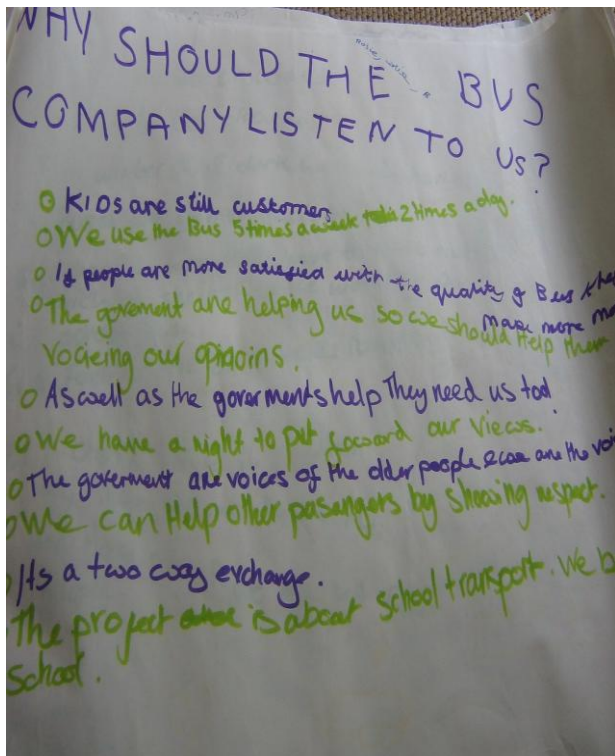 WHY SHOULD THE BUS
COMPANY LISTEN TO US?
KIDS are still customers
We use the Bus 5 times a week 2 times a day.
If people are more satisfied with the quality of Bus they
make more
The goverment are helping us so we should help them
Vocieing our opioins.
Aswell as the goverments help They need us too!
We have a right to put foward our views.
The goverment are voices of the older people are the
We can Help other pasangers by showing respect.
Its a two way exchange.
The project is about school transport. We
school.